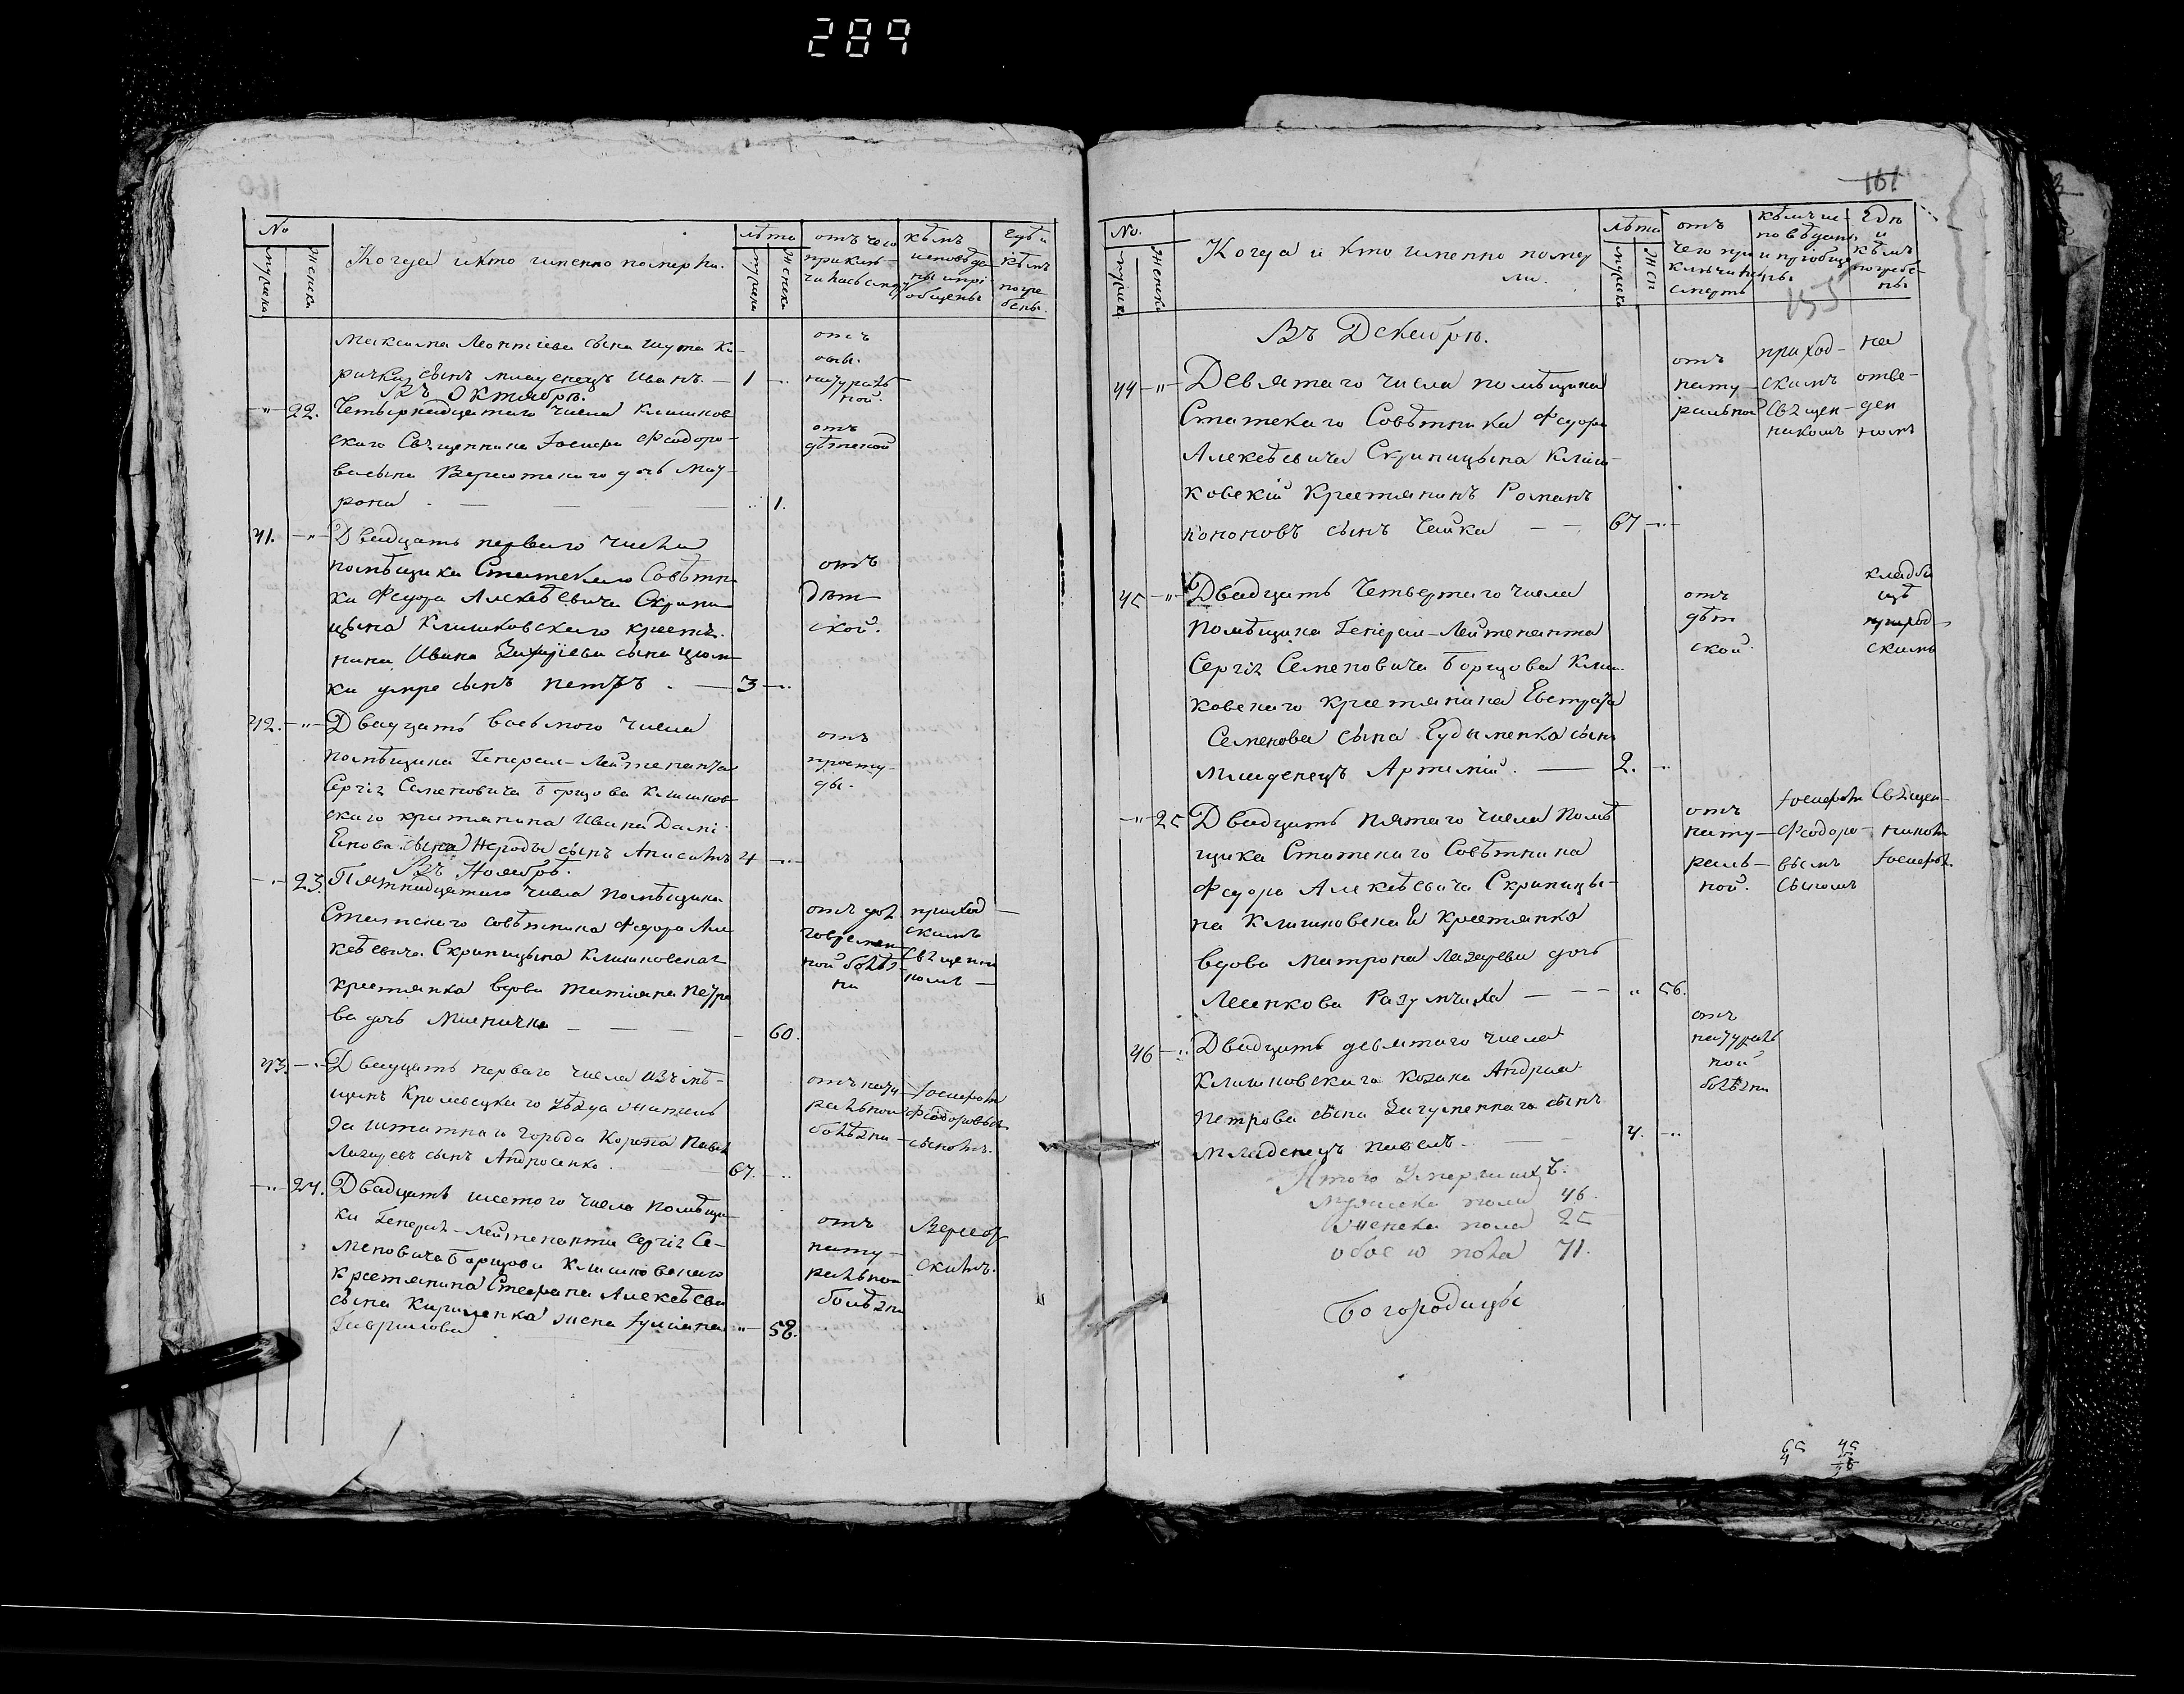 289
160
No
Когда и кто именно померли.
лѣта
отъ чего приключилась смерть
кѣмъ исповѣданы и пріобщены
гдѣ и кѣмъ погребены.
мужеска
женска
мужеска
женска
Максима Леонтіева сына
сынъ младенецъ Иванъ. — 1 — ..
отъ
натураль
ной.
Въ Октябрѣ.
— " — 22. Четырнадцатаго числа Клишков
скаго Священника Іосифа Феодоро-
ва сына дочь Мат-
рона . — — — .. 1.
отъ
дѣтской
41. — " — Двадцать перваго числа
помѣщика Статскаго Совѣтни
ка Федора Алексѣевича Скрипи
цына Клишковскаго крестья
нина Ивана сына
ки умре сынъ Петръ . — 3 — ..
отъ
дѣт
ской.
42. — " — Двадцать восьмого числа
помѣщика Генерал-Лейтенанта
Сергія Семеновича Борщова Клишков
скаго крестьянина Ивана
сына сынъ 4 — ..
отъ
просту-
ды.
Въ Ноябрѣ.
— " — 23. Пятнадцатаго числа помѣщика
Статскаго совѣтника Федора Але
ксѣевича Скрипицына Клишковская
крестьянка вдова Татіана Петро
ва дочь — — — 60.
отъ дол
говремен
ной болѣз
ни
приход —
скимъ
Священни
комъ —
43. — " — Двадцать перваго числа
Кролевецкаго уѣзда
заштатнаго города Коропа Павелъ
Лазаревъ сынъ Андросенко . 67. — ..
отъ нату
ральной
болѣзни
Іосифомъ
Феодоровым
сыномъ.
— " — 24. Двадцать шестого числа помѣщи
ка Генерал-Лейтенанта Сергія Се-
меновича Борщова Клишковскаго
крестьянина Стефана Алексѣева
сына жена Іуліана
Гаврилова " — 58.
отъ
нату-
ральной
болѣзни
161
155
No.
Когда и кто именно помер
ли.
лѣта
отъ
чего при
ключилась
смерть
кѣмъ ис-
повѣданы
и пріобще
ны
Гдѣ
и
кѣмъ
погребе-
ны
мужеска
женска
мужеска
Въ Декабрѣ.
44 — " — Девятаго числа помѣщика
Статскаго Совѣтника Федора
Алексѣевича Скрипицына Клиш-
ковскій Крестьянинъ Романъ
Кононовъ сынъ Чайка — — 67 — ..
отъ
нату-
ральной
приход-
скимъ
Священ-
никомъ
на
отве-
ден
номъ
45 — " — Двадцать Четвертаго числа
Помѣщика Генерал-Лейтенанта
Сергія Семеновича Борщова Клиш
ковскаго крестьянина Евстрата
Семенова сына сынъ
младенецъ Артемій . — 2. — ..
отъ
дѣт
ской.
кладби
щѣ
приход-
скимъ
— " — 25 Двадцать пятаго числа Помѣ
щика Статскаго Совѣтника
Федора Алексѣевича Скрипицы-
на Клишковская Крестьянка
вдова Матрона Лазарева дочь
— — — " 56.
отъ
нату-
раль-
ной.
Іосифомъ
Феодоро-
вымъ
сыномъ
Священ-
никомъ
Іосифомъ
46 — " — Двадцать девятаго числа
Клишковскаго козака Андрея
Петрова сына сынъ
младенецъ Павелъ . — — 4. — ..
отъ
натураль
ной
болѣзни
Итого Умершихъ.
мужеска пола 46.
женска пола 25
обоего пола 71.
Богородицы